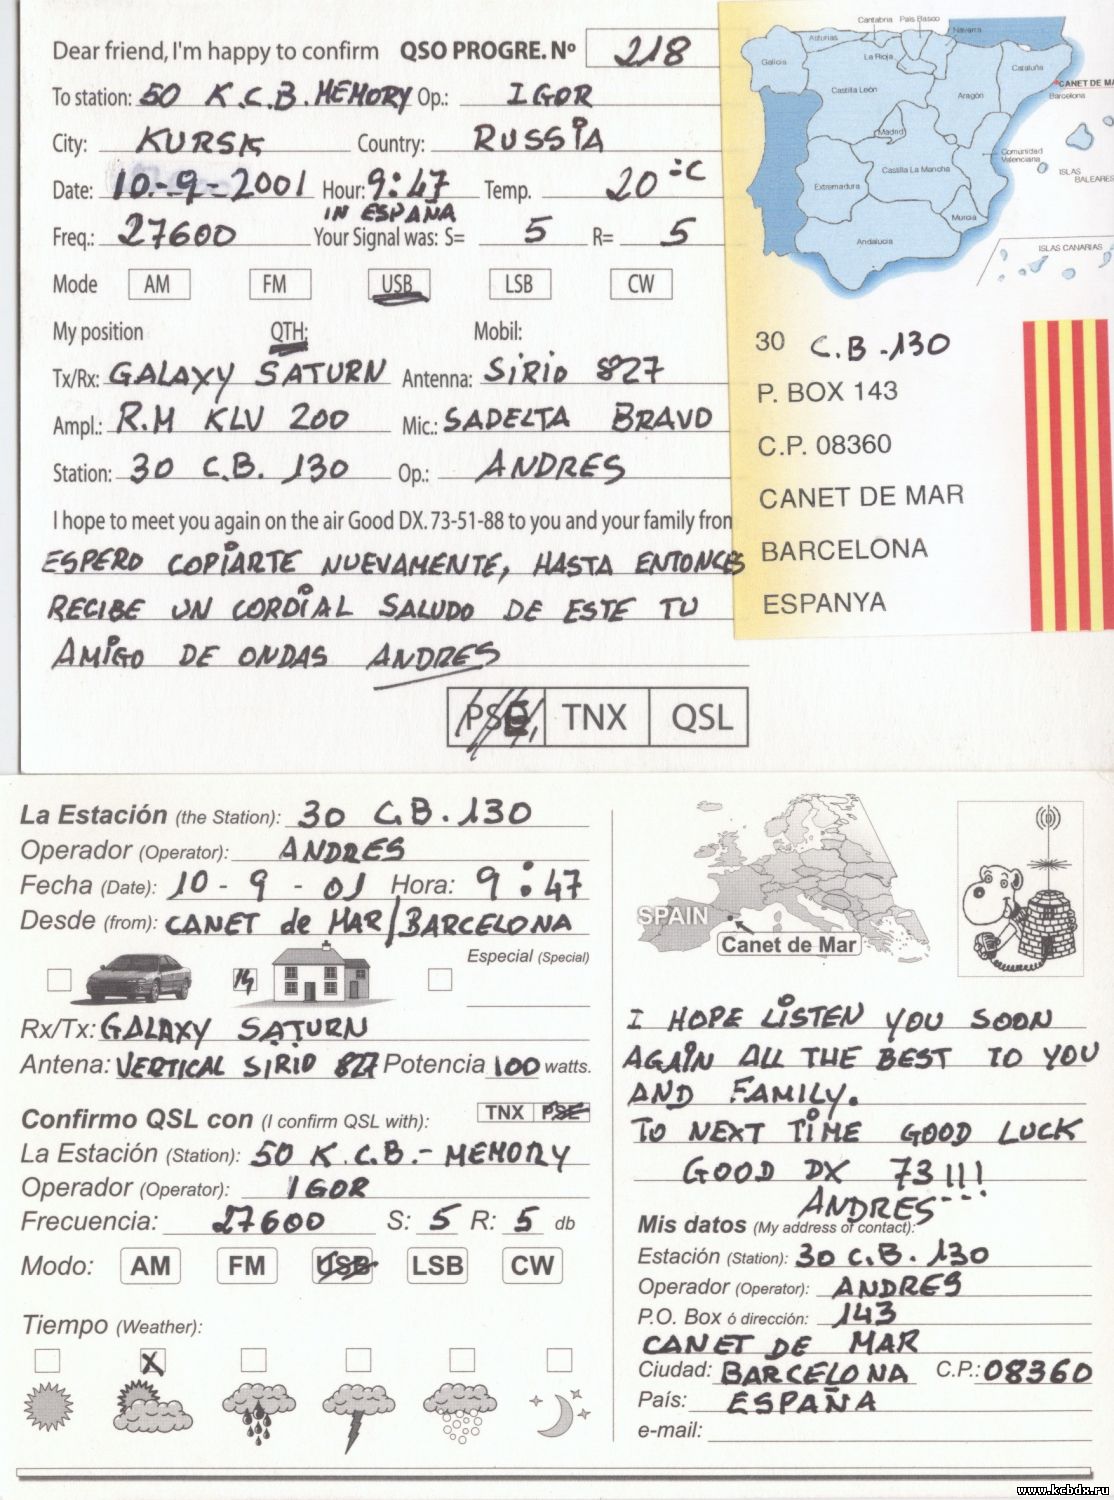 Dear friend, I'm happy to confirm QSO PROGRE. Nº 218
To station: 50 K.C.B. MEMORY Op.: IGOR
City: KURSK Country: RUSSIA
Date: 10-9-2001 Hour: 9:47 Temp. 20ºC
IN ESPAÑA
Freq.: 27600 Your Signal was: S= 5 R= 5
Mode AM FM USB LSB CW
My position QTH: Mobil:
Tx/Rx: GALAXY SATURN Antenna: SIRIO 827
Ampl.: R.M KLV 200 Mic.: SADELTA BRAVO
Station: 30 C.B. 130 Op.: ANDRES
I hope to meet you again on the air Good DX. 73-51-88 to you and your family fron
ESPERO COPIARTE NUEVAMENTE, HASTA ENTONCES
RECIBE UN CORDIAL SALUDO DE ESTE TU
AMIGO DE ONDAS ANDRES
PSE TNX QSL
Cantabria País Basco
Asturias Navarra
Galicia La Rioja Cataluña
CANET DE MA
Castilla León Aragón Barcelona
Madrid
Comunidad
Valenciana
Castilla La Mancha
ISLAS
BALEARES
Extremadura
Murcia
Andalucia
ISLAS CANARIAS
30 C.B-130
P. BOX 143
C.P. 08360
CANET DE MAR
BARCELONA
ESPANYA
La Estación (the Station): 30 C.B.130
Operador (Operator): ANDRES
Fecha (Date): 10-9-01 Hora: 9:47
Desde (from): CANET de MAR/BARCELONA
Especial (Special)
Rx/Tx: GALAXY SATURN
Antena: VERTICAL SIRIO 827 Potencia 100 watts.
Confirmo QSL con (I confirm QSL with): TNX PSE
La Estación (Station): 50 K.C.B.- MEMORY
Operador (Operator): IGOR
Frecuencia: 27600 S: 5 R: 5 db
Modo: AM FM USB LSB CW
Tiempo (Weather):
X
SPAIN
Canet de Mar
I HOPE LISTEN YOU SOON
AGAIN ALL THE BEST TO YOU
AND FAMILY.
TO NEXT TIME GOOD LUCK
GOOD DX 73!!!
ANDRES
Mis datos (My address of contact):
Estación (Station): 30 C.B. 130
Operador (Operator): ANDRES
P.O. Box ó dirección: 143
CANET DE MAR
Ciudad: BARCELONA C.P.: 08360
País: ESPAÑA
e-mail:
www.kcbdx.ru